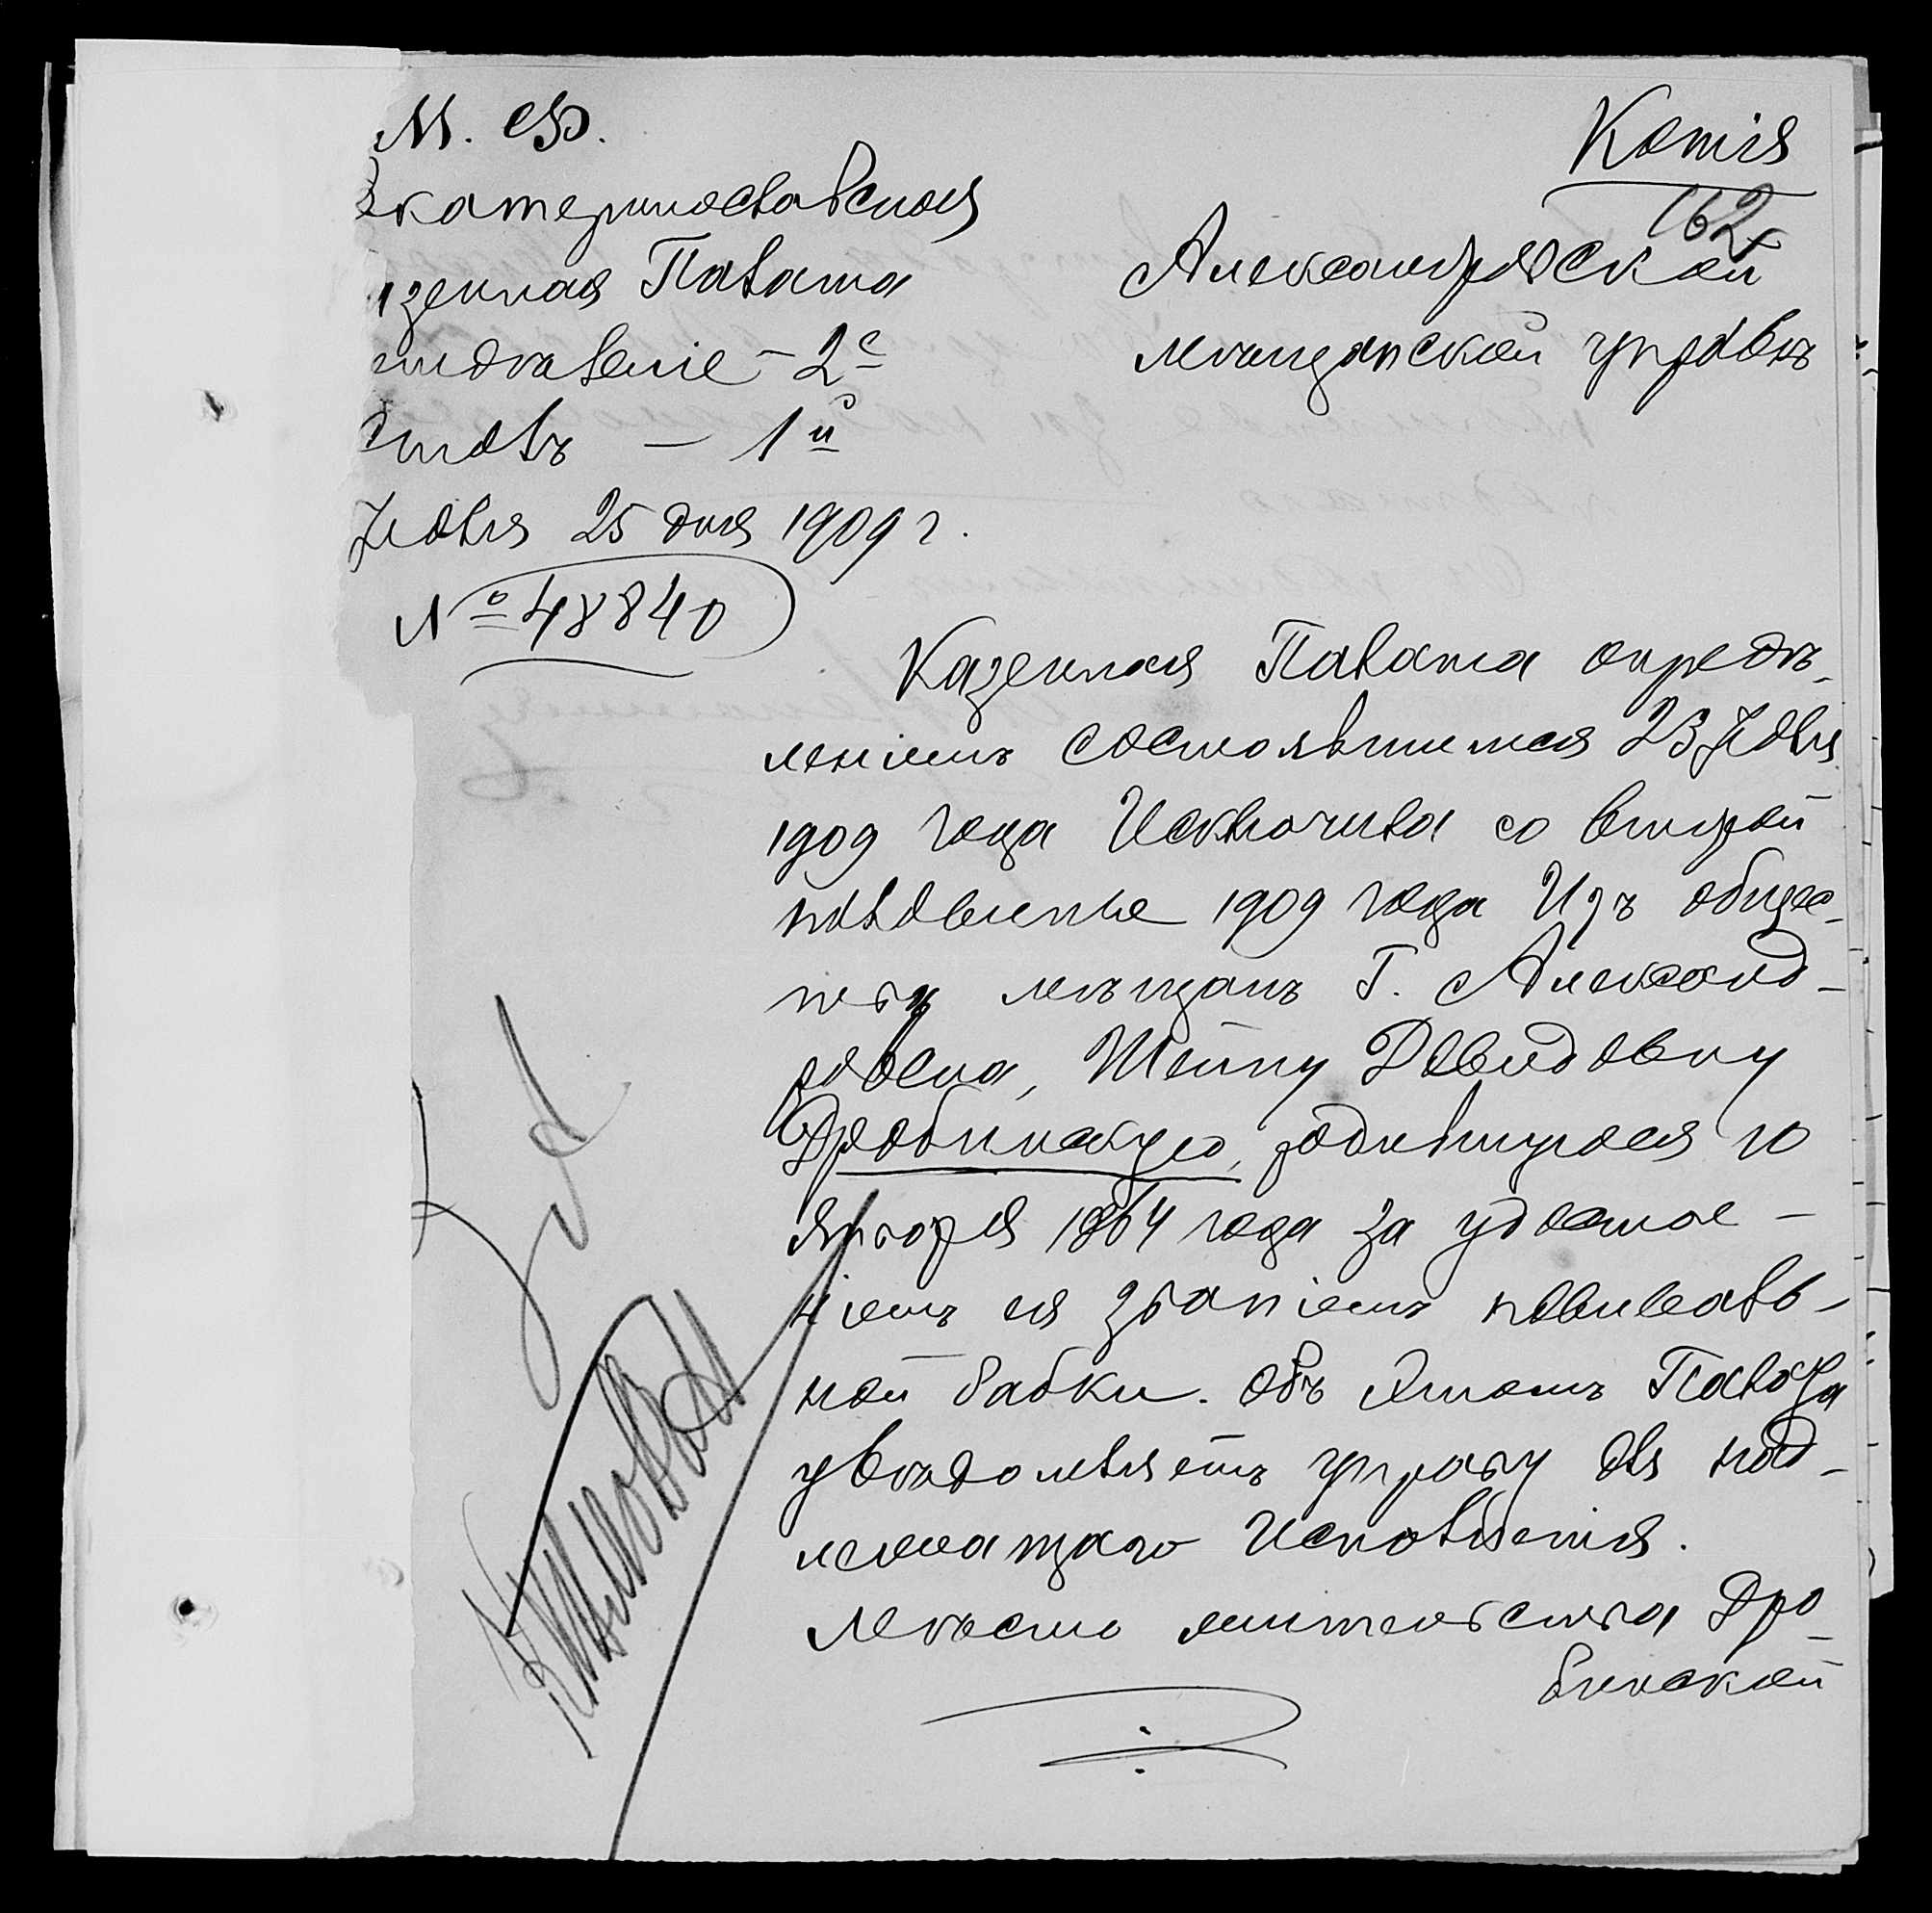 М. Ф.
Екатеринославская
азенная Палата
тдѣленіе – 2е
столъ – 1й
Іюля 25 дня 1909 г.
№ 48840
Копія
162
Александровской
мѣщанской управѣ
Казенная Палата опредѣ-
леніемъ состоявшимся 23 Іюля
1909 года Исключила со второй
половины 1909 года Изъ общес-
тва мѣщанъ Г. Александ-
ровска, Шейну Давидовну
Дробинскую, родившуюся 10
января 1864 года за удостое-
ніемъ ея званіемъ повиваль-
ной бабки. Объ этомъ Палата
увѣдомляетъ управу для над-
лежащаго Исполненія.
Мѣсто жительства Дро-
бинской